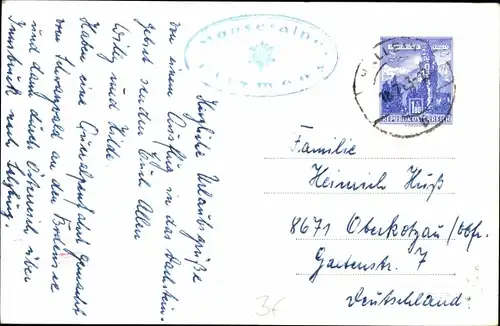 Herzliche Urlaubsgrüße
von einem Ausflug in das Dachstein-
gebiet senden Euch Allen
Willy und Hilde.
Haben eine Grünalpenfahrt gemacht
vom Schwarzwald an den Bodensee
und dann durch Österreich, über
Innsbruck nach Salzburg.
REPUBLIK ÖSTERREICH
Familie
Heinrich Huß
8671 Oberkotzau/Obfr.
Gartenstr. 7
Deutschland.
3€